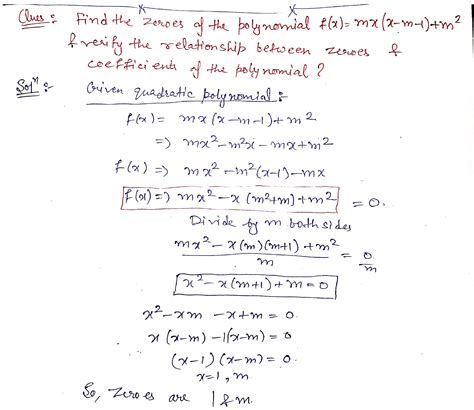 Ques :- Find the zeroes of the polynomial f(x) = mx(x-m-1)+m²
& verify the relationship between zeroes &
coefficients of the polynomial ?
Solⁿ :- Given quadratic polynomial :-
f(x) = mx(x-m-1)+m²
=> mx²-m²x-mx+m²
f(x) => mx²-m²(x-1)-mx
f(x) => mx²-x(m²+m)+m² = 0.
Divide by m both sides
mx²-x(m)(m+1)+m² / m = 0/m
x²-x(m+1)+m=0
x²-xm-x+m=0.
x(x-m)-1(x-m)=0
(x-1)(x-m)=0.
x=1, m.
So, zeroes are 1 & m.